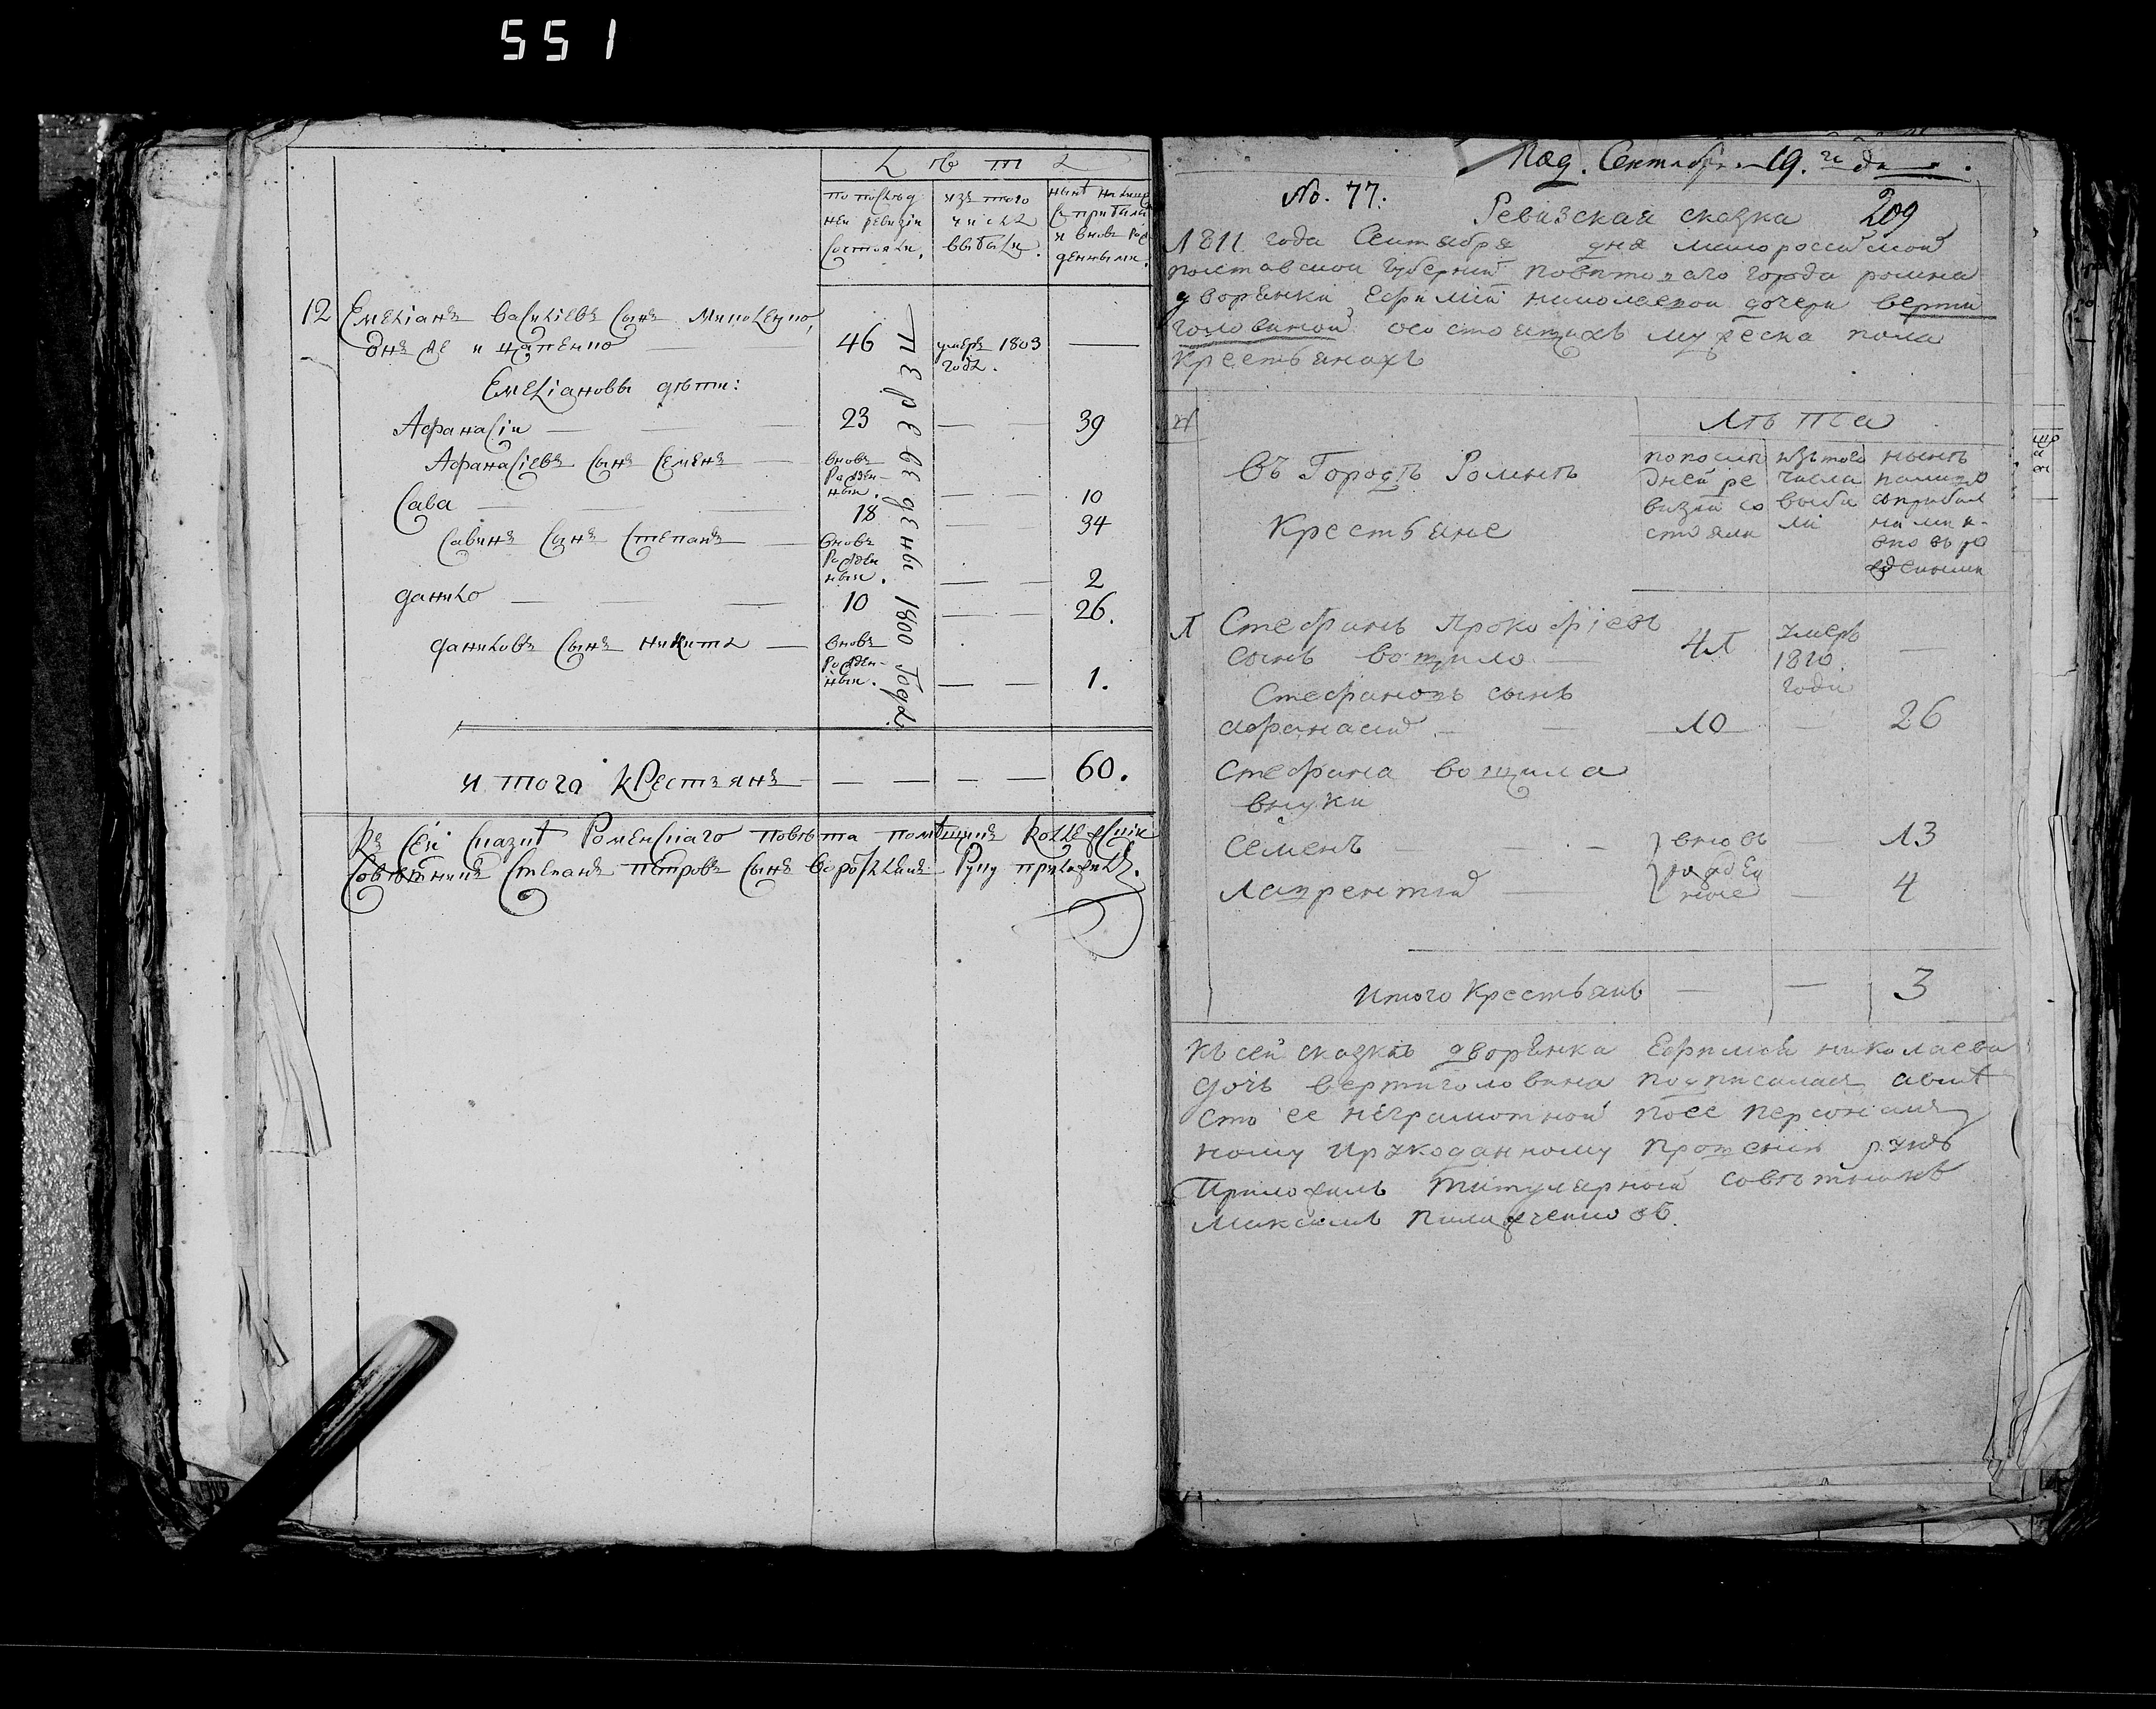 551
Лѣта
по послѣд
ней ревизіи
состояли.
изъ того
числа
выбыли.
нынѣ на лицо
съ прибылы
и вновь рож
денными.
12 Емеліанъ Василіевъ сынъ
онъ же и Цапенко — 46 умеръ 1803 —
года.
Емеліановы дѣти:
Афанасіи — 23 — 39
Афанасіевъ сынъ Семенъ — вновь
рожден-
ныи. — 10
Сава — 18 — 34
Савинъ сынъ Степанъ — вновь
рожден
ныи. — 2
данило — 10 — 26.
даниловъ сынъ никита — вновь
рожден-
ныи. — 1.
Переведены 1800 Года
и того крестъянъ — 60.
Къ сей сказкѣ Роменскаго повѣта помѣщикъ Коллежскіи
Совѣтникъ Степанъ Петровъ сынъ руку приложилъ.
Под. Сентября 19. го дня
No. 77.
Ревизская сказка 209
1811 года Сентября дня малороссийской
полтавской губернии повѣтоваго города ромна
дворянки Ефимии николаевой дочери верти
головиной о состоящихъ мужеска пола
крестьянахъ
Лѣта
Въ Городѣ Ромнѣ
Крестьяне
по посли
дней ре
визии со
стояли
изъ того
числа
выбы
ли
нынѣ
налицо
съ прибыл
ми и
вновь ро
жденными
1 Стефанъ Прокофіевъ
сынъ вощило 41 умеръ
1810.
года —
Стефановъ сынъ
Афанасий — 10 — 26
Стефана вощила
внуки
Семенъ — вновь — 13
Лаврентий — рожден
ные — 4
Итого Крестьянъ — — 3
Къ сей сказкѣ дворянка Ефимия николаева
дочь вертиголовина подписалась авмѣ
сто ее неграмотной по ее персонал
ному ирукоданному прошению руку
Приложилъ титулярной совѣтникъ
Максимъ